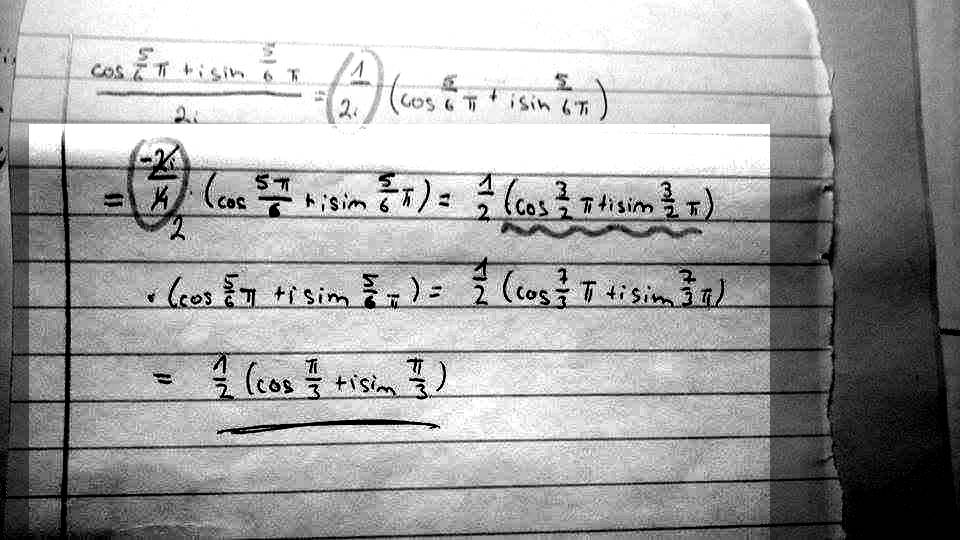 cos 5/6 π + i sin 5/6 π / 2i = 1/2i (cos 5/6 π + i sin 5/6π)
= -2i/4 2 · (cos 5π/6 + i sin 5/6 π) = 1/2 (cos 3/2 π + i sin 3/2 π)
· (cos 5/6 π + i sin 5/6 π) = 1/2 (cos 7/3 π + i sin 7/3 π)
= 1/2 (cos π/3 + i sin π/3)